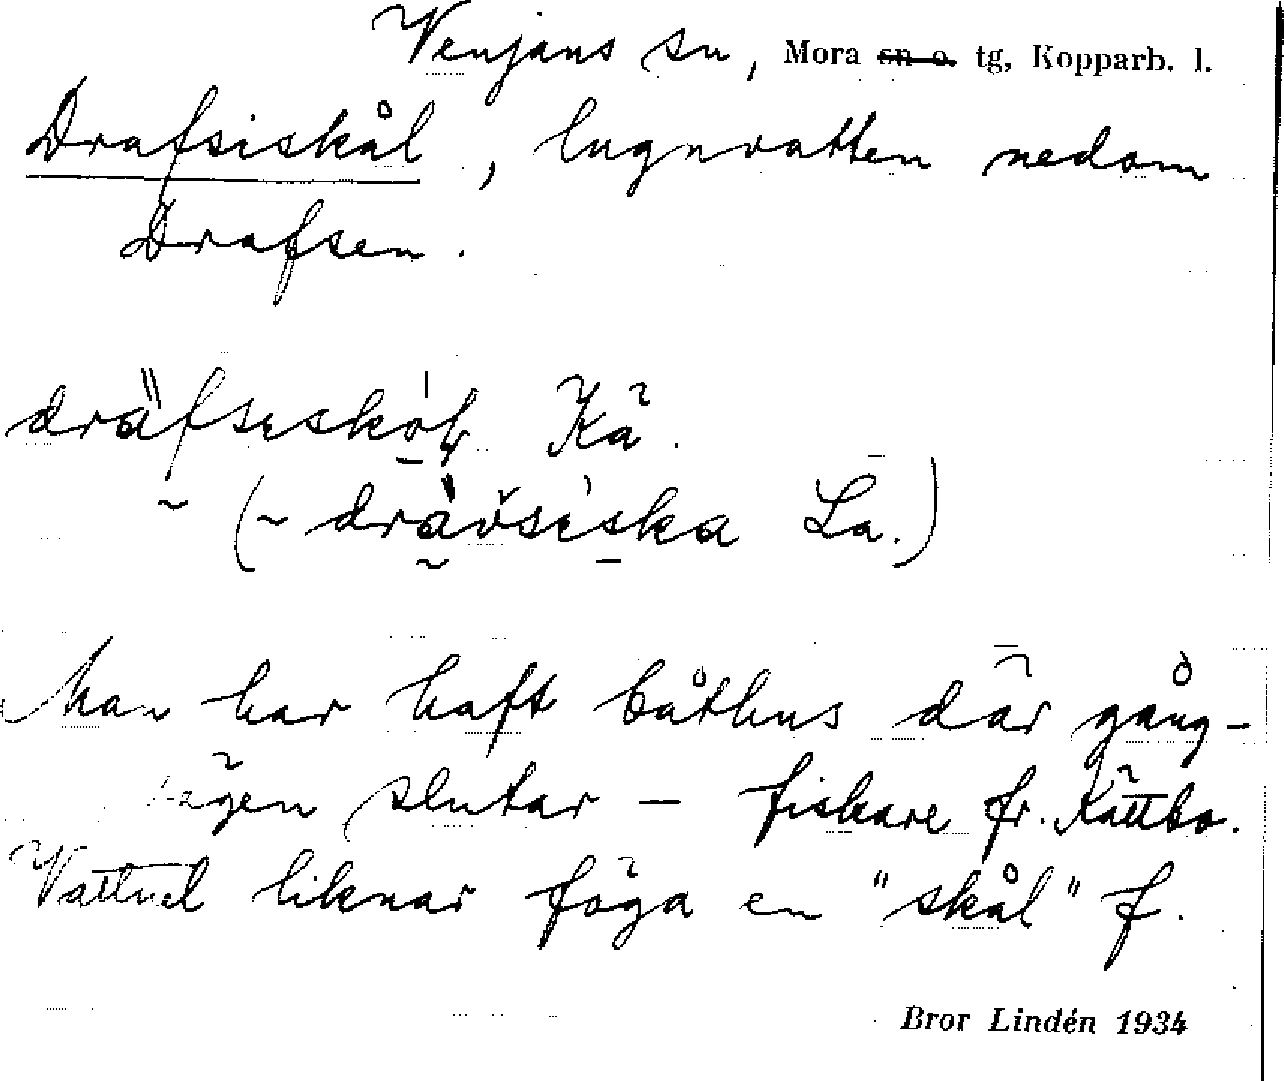 Venjans sn, Mora sn o. tg, Kopparb. l.
Drafsiskål, lugnvatten nedom
Drafsen.
Kä.
La.)
Man har haft båthus där gång-
vägen slutar — fiskare fr. Kättbo.
Vattnet liknar föga en "skål" f.
Bror Lindén 1934